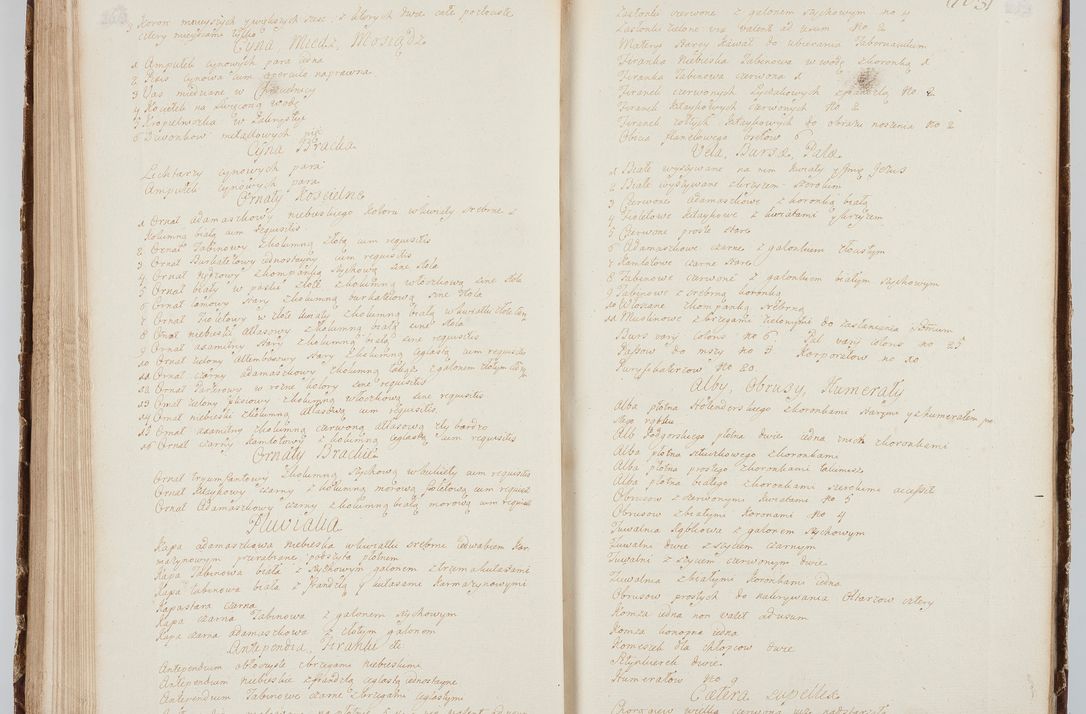 Koron mnieyszych y większych sześć, z których dwie całe pozłociste
cztery mieyscami tylko
Cyna, Miedź, Mosiądz
1 Ampułek cynowych para iedna
2 Puszka cynowa cum operculo naprawna
3 Vas miedziane w Chrzcielnicy
4 Kociełek na święconą wodę
5 Kropielniczka w Zakrystyi
6 Dzwonków metallowych pięć
Cyna Bracka
Lichtarzy cynowych para
Ampułek cynowych para
Ornaty Kościelne
1 Ornat adamaszkowy niebieskiego koloru w kwiaty srebrne z
kolumną białą cum requisitis
2 Ornat Tabinowy z kolumną złotą cum requisitis
3 Ornat Burkatelowy iednostayny cum requisitis
4 Ornat Ryżowy z kompanką szychową sine stola
5 Ornat biały w paski złote z kolumną włoczkową sine stola
6 Ornat lamowy stary z kolumną burkatelową sine stola
7 Ornat Fioletowy w złote kwiaty z kolumną białą w kwiatki złote cum
8 Ornat niebieski atłasowy z kolumną białą sine stola
9 Ornat axamitny stary z kolumną białą sine requisitis
10 Ornat zielony altembasowy stary z kolumną ceglastą cum requisitis
11 Ornat czarny adamaszkowy z kolumną także z galonem złotym cum
12 Ornat Parterowy w rożne kolory sine requisitis
13 Ornat zielony włosiowy z kolumną włoczkową sine requisitis
14 Ornat niebieski z kolumną atłasową cum requisitis
15 Ornat axamitny z kolumną czerwoną atłasową zły bardzo
16 Ornat czarny kamlotowy z kolumną ceglastą cum requisitis
Ornaty Brackie
Ornat tryumfantowy z kolumną szychową w kwiaty cum requisitis
Ornat kitaykowy czarny z kolumną morową fioletową cum requisit
Ornat Adamaszkowy czarny z kolumną białą morową cum requisit
Pluvialia
Kapa adamaszkowa niebieska w kwiatki srebrne iedwabiem kar
mazynowym przerabiane podszyta płotnem
Kapa Tabinowa biała z szychowym galonem z trzema kutasami
Kapa tabinowa biała z frandzlą y kutasami karmazynowymi
Kapa stara czarna
Kapa czarna Tabinowa z galonem szychowym
Kapa czarna adamaszkowa z złotym galonem
Antependia, Firanki etc
Antependium obłoczyste z brzegami niebieskimi
Antependium niebieskie z frandzlą ceglastą iednostayne
Antependium Tabinowe czarne z brzegami ceglastymi
Zasłonki czerwone z galonem szychowym No 4
Zasłonki zielone vix valent ad usum No 2
Materyi starey kawał do ubierania Tabernaculum
Firanka niebieska Tabinowa w wodę z koronką 1
Firanka Tabinowa czerwona 1
Firanek czerwonych Łyczakowych z frandzlą No 2
Firanek kitaykowych czerwonych No 2
Firanek zołtych kitaykowych do obrazu noszenia No 2
Obicia flanelowego bretów 6
Vela, Bursæ, Palæ
1 Białe wyszywane na nim kwiaty y Imię Jezus
2 Białe wyszywane z krzyżem
3 Czerwone adamaszkowe z koronką białą
4 Fioletowe kitaykowe z kwiatami y krzyżem
5 Czerwone proste stare
6 Adamaszkowe czarne z galonkiem złocistym
7 Kamlotowe czarne stare
8 Tabinowe czerwone z galonkiem białym szychowym
9 Tabinowe z srebrną koronką
10 Włoczane z kompanką srebrną
11 Muslinowe z brzegami zielonymi do zasłaniania
Burs varij coloris No 6 Pal varij coloris No 25
Pasków do mszy No 3 Korporałów No 10
Puryfikaterzów No 20
Alby, Obrusy, Humerały
Alba płotna Hollenderskiego z koronkami starymi y z humerałem po
tego rąbku
Alb Podgorskiego płotna dwie iedna z koronkami
Alba płotna sztuczkowego z koronkami
Alba płotna prostego z koronkami
Alba płotna białego z koronkami szerokimi accessit
Obrusow z czerwonymi kwiatami No 5
Obrusow z białymi koronami No 4
Tuwalnia rąbkowa z galonem szychowym
Tuwalni dwie z szyciem czarnym
Tuwalni z szyciem czerwonym dwie
Tuwalnia z białymi koronkami iedna
Obrusow prostych do nakrywania Ołtarzow cztery
Komża iedna non valet ad usum
Komża konopna iedna
Komeszek dla chłopcow dwie
Ręczniczek dwie
Humerałow No 9
Cætera supellex
Chorągiew wielka czerwona